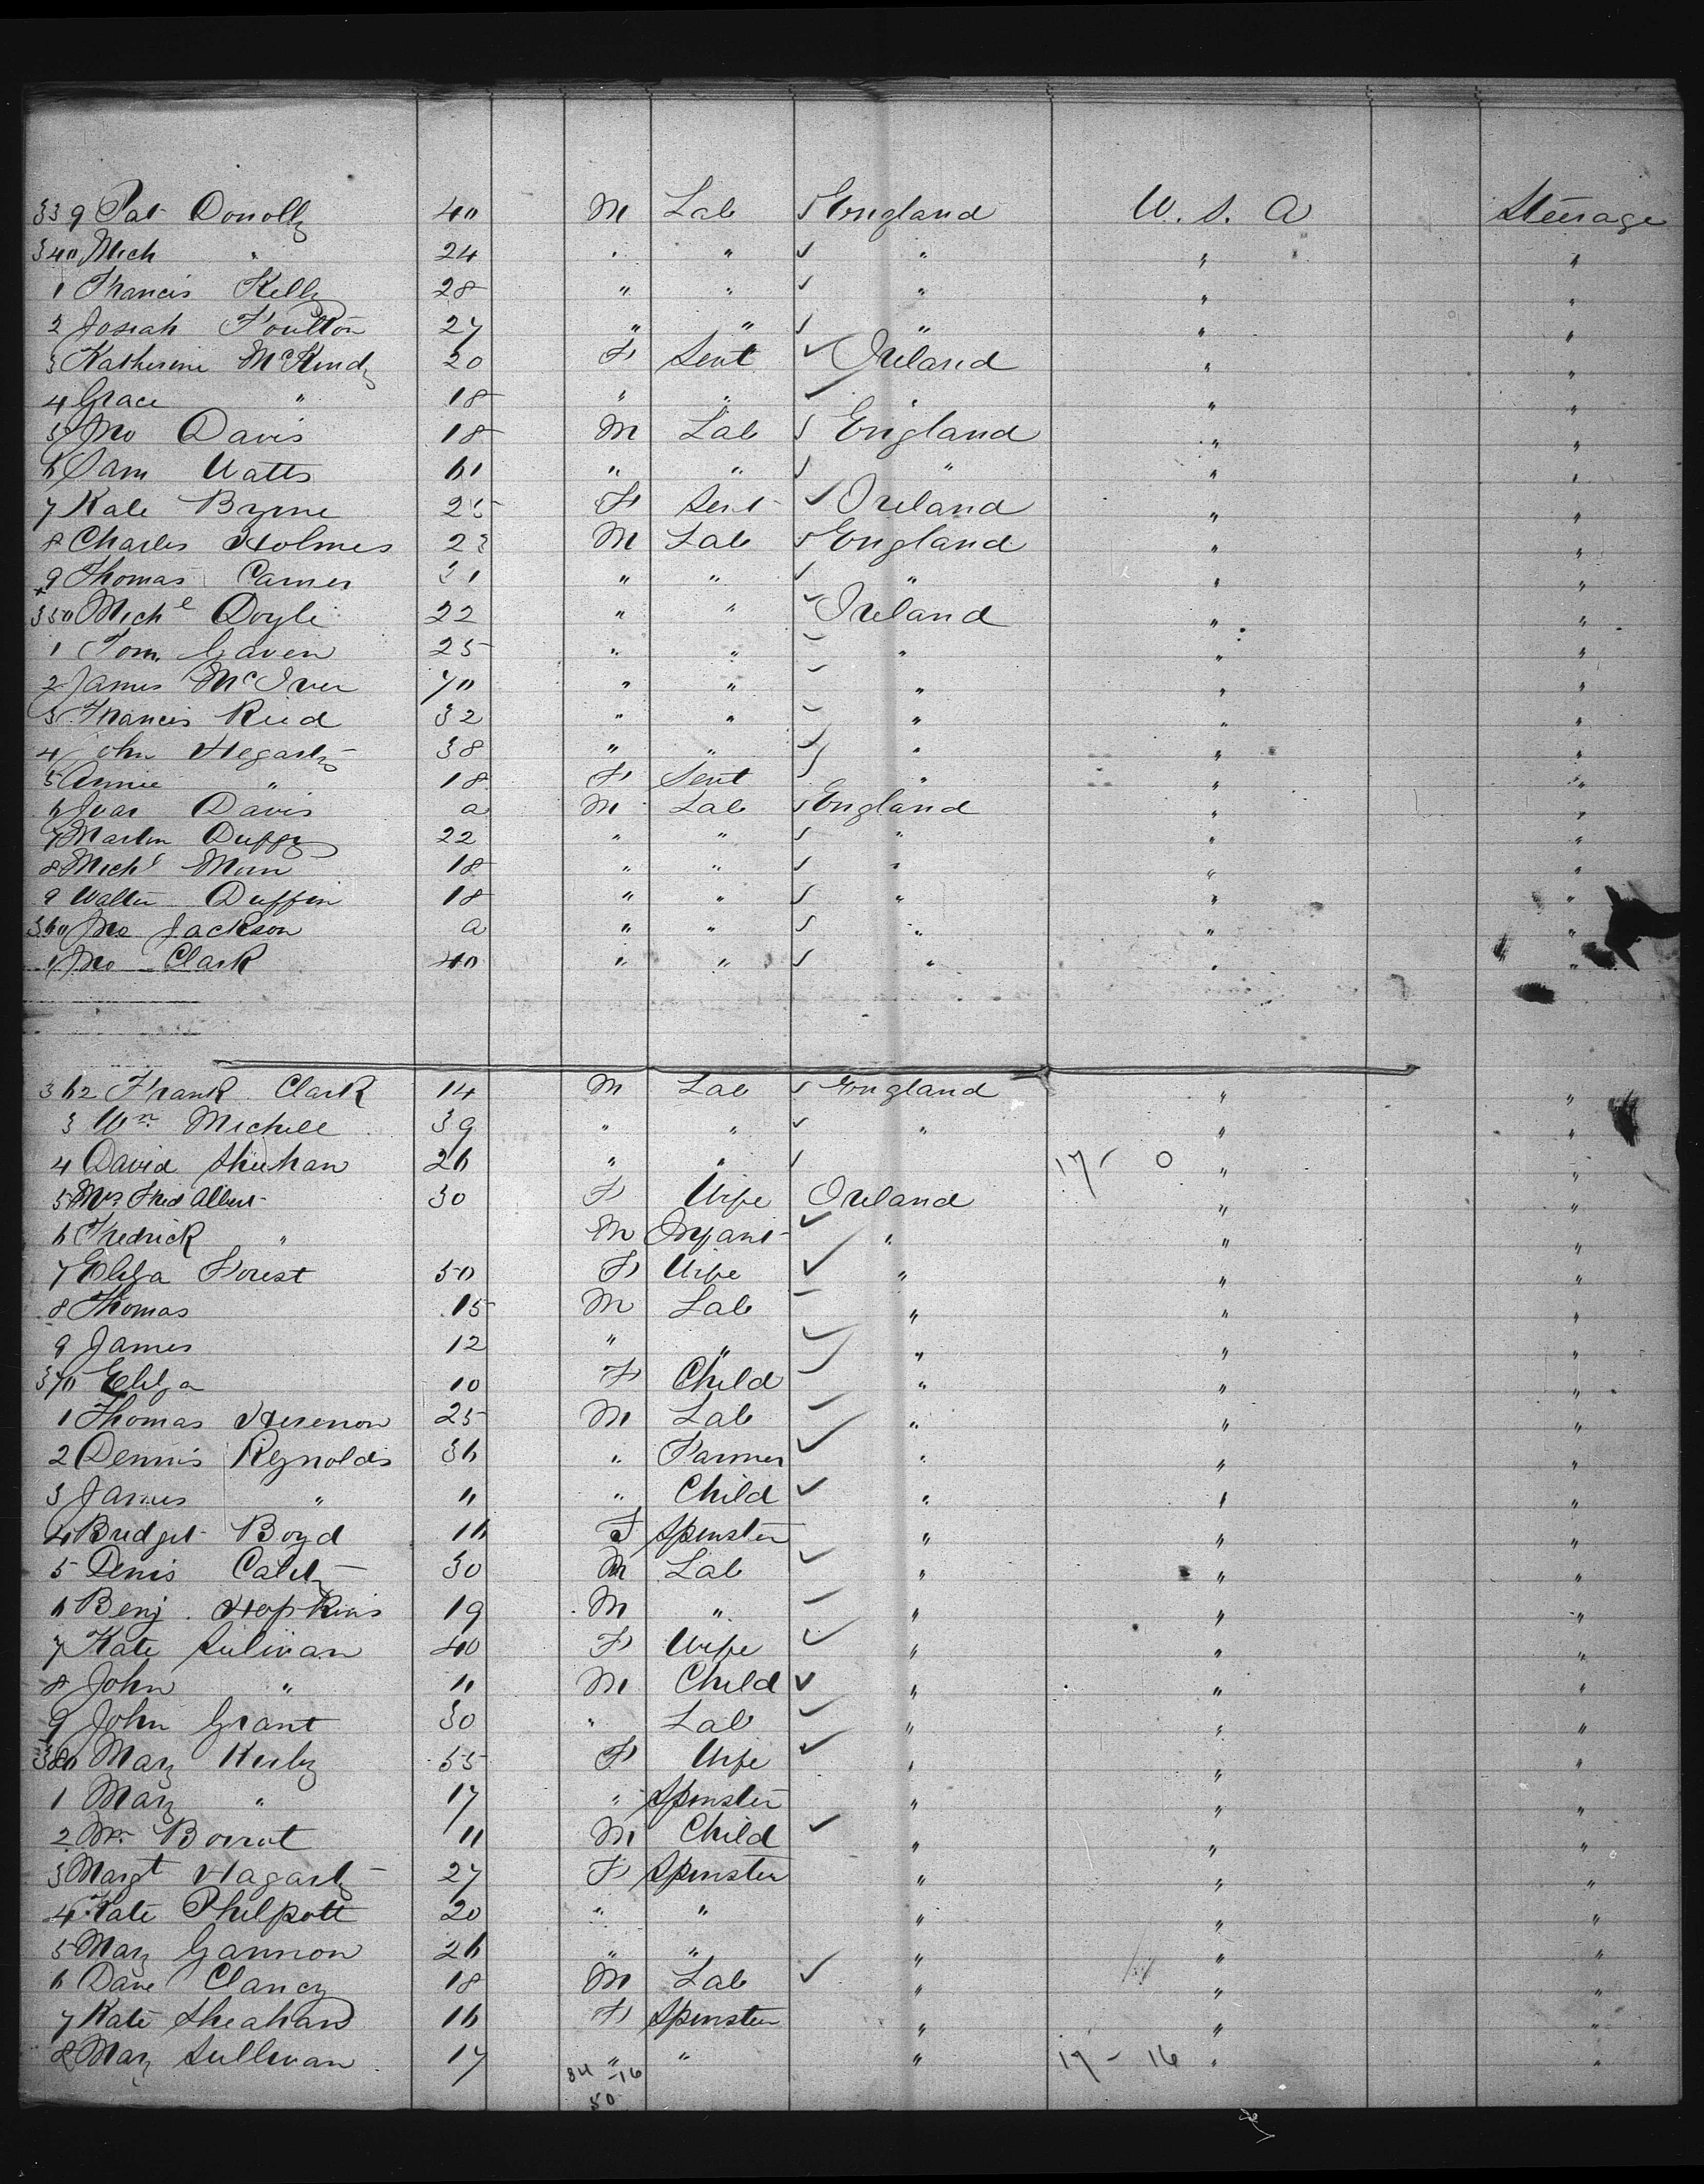 339 Pat Donolly 40 M Lab England U. S. A Steerage
340 Mich " 24 " " " " "
1 Francis Kelly 28 " " " " "
2 Josiah Foulton 27 " " " " "
3 Katherine McKendy 20 F Sevt Ireland " "
4 Grace " 18 " " " " "
5 Jno Davis 18 M Lab England " "
6 Sam Watts 61 " " " " "
7 Kate Byrne 25 F Sevt Ireland " "
8 Charles Holmes 23 M Lab England " "
9 Thomas Carner 31 " " " " "
350 Michl Doyle 22 " " Ireland " "
1 Tom Gaven 25 " " " " "
2 James McIver 40 " " " " "
3 Francis Reid 32 " " " " "
4 John Hegarty 38 " " " " "
5 Annie " 18 F Sevt " " "
6 Ivar Davis a M Lab England " "
7 Martin Duffy 22 " " " " "
8 Michl 18 " " " " "
9 Walter Duffin 18 " " " " "
360 Jno Jackson a " " " " "
1 Jno Clark 40 " " " " "
362 Frank Clark 14 M Lab England " "
3 Wm Michell 39 " " " " "
4 David Sheehan 26 " " 17 - 0 " "
5 Mrs Fred Albert 30 F Wife Ireland " "
6 Fredrick " M Infant " " "
7 Eliza Forest 50 F Wife " " "
8 Thomas 15 M Lab " " "
9 James 12 " " " " "
370 Eliza 10 F Child " " "
1 Thomas Herenon 25 M Lab " " "
2 Dennis Reynolds 36 " Farmer " " "
3 James " 11 " Child " " "
4 Bridget Boyd 16 F Spinster " " "
5 Denis 30 M Lab " " "
6 Benj. Hopkins 19 M " " " "
7 Kate Sulivan 40 F Wife " " "
8 John " 11 M Child " " "
9 John Grant 30 " Lab " " "
380 Mary Kirby 55 F Wife " " "
1 Mary " 17 " Spinster " " "
2 Wm 11 M Child " " "
3 Margt Hagarty 27 F Spinster " " "
4 Kate Philpott 20 " " " " "
5 Mary Gannon 26 " " " " "
6 Dave Clancy 18 M Lab " " "
7 Kate Sheahan 16 F Spinster " " "
8 Mary Sullivan 17 " " " 17 - 16 " "
34 - 16
50